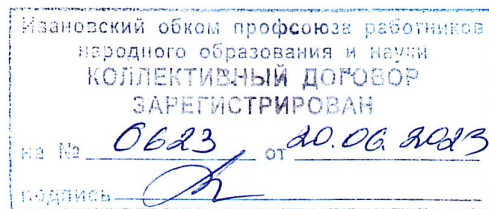 Ивановский обком профсоюза работников
народного образования и науки
КОЛЛЕКТИВНЫЙ ДОГОВОР
ЗАРЕГИСТРИРОВАН
за № 0623 от 20.06.2023
подпись